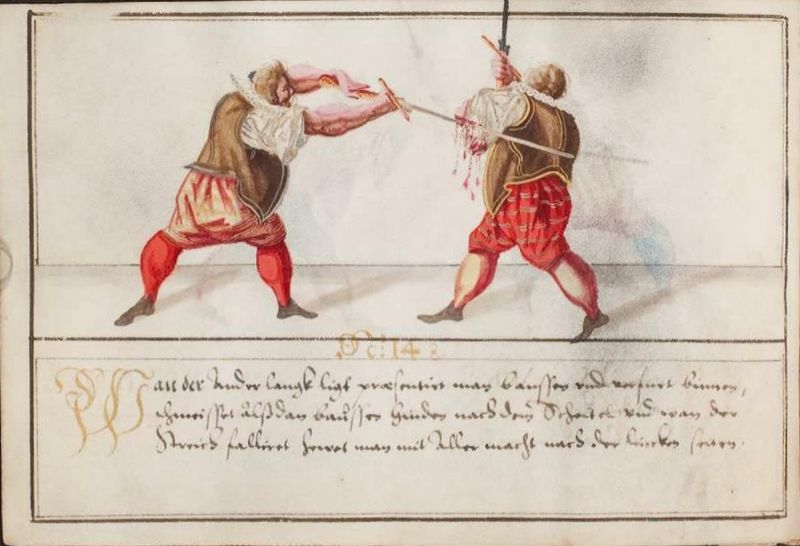 N⁰: 14 :
Wan der Ander langk ligt præsentirt man baussen vnd verfurt binnen,
schmeisset alsdan baussen hinden nach dem Scheitel vnd wan der
Streich falliret hewet man mit Aller macht nach der lincken seiten.